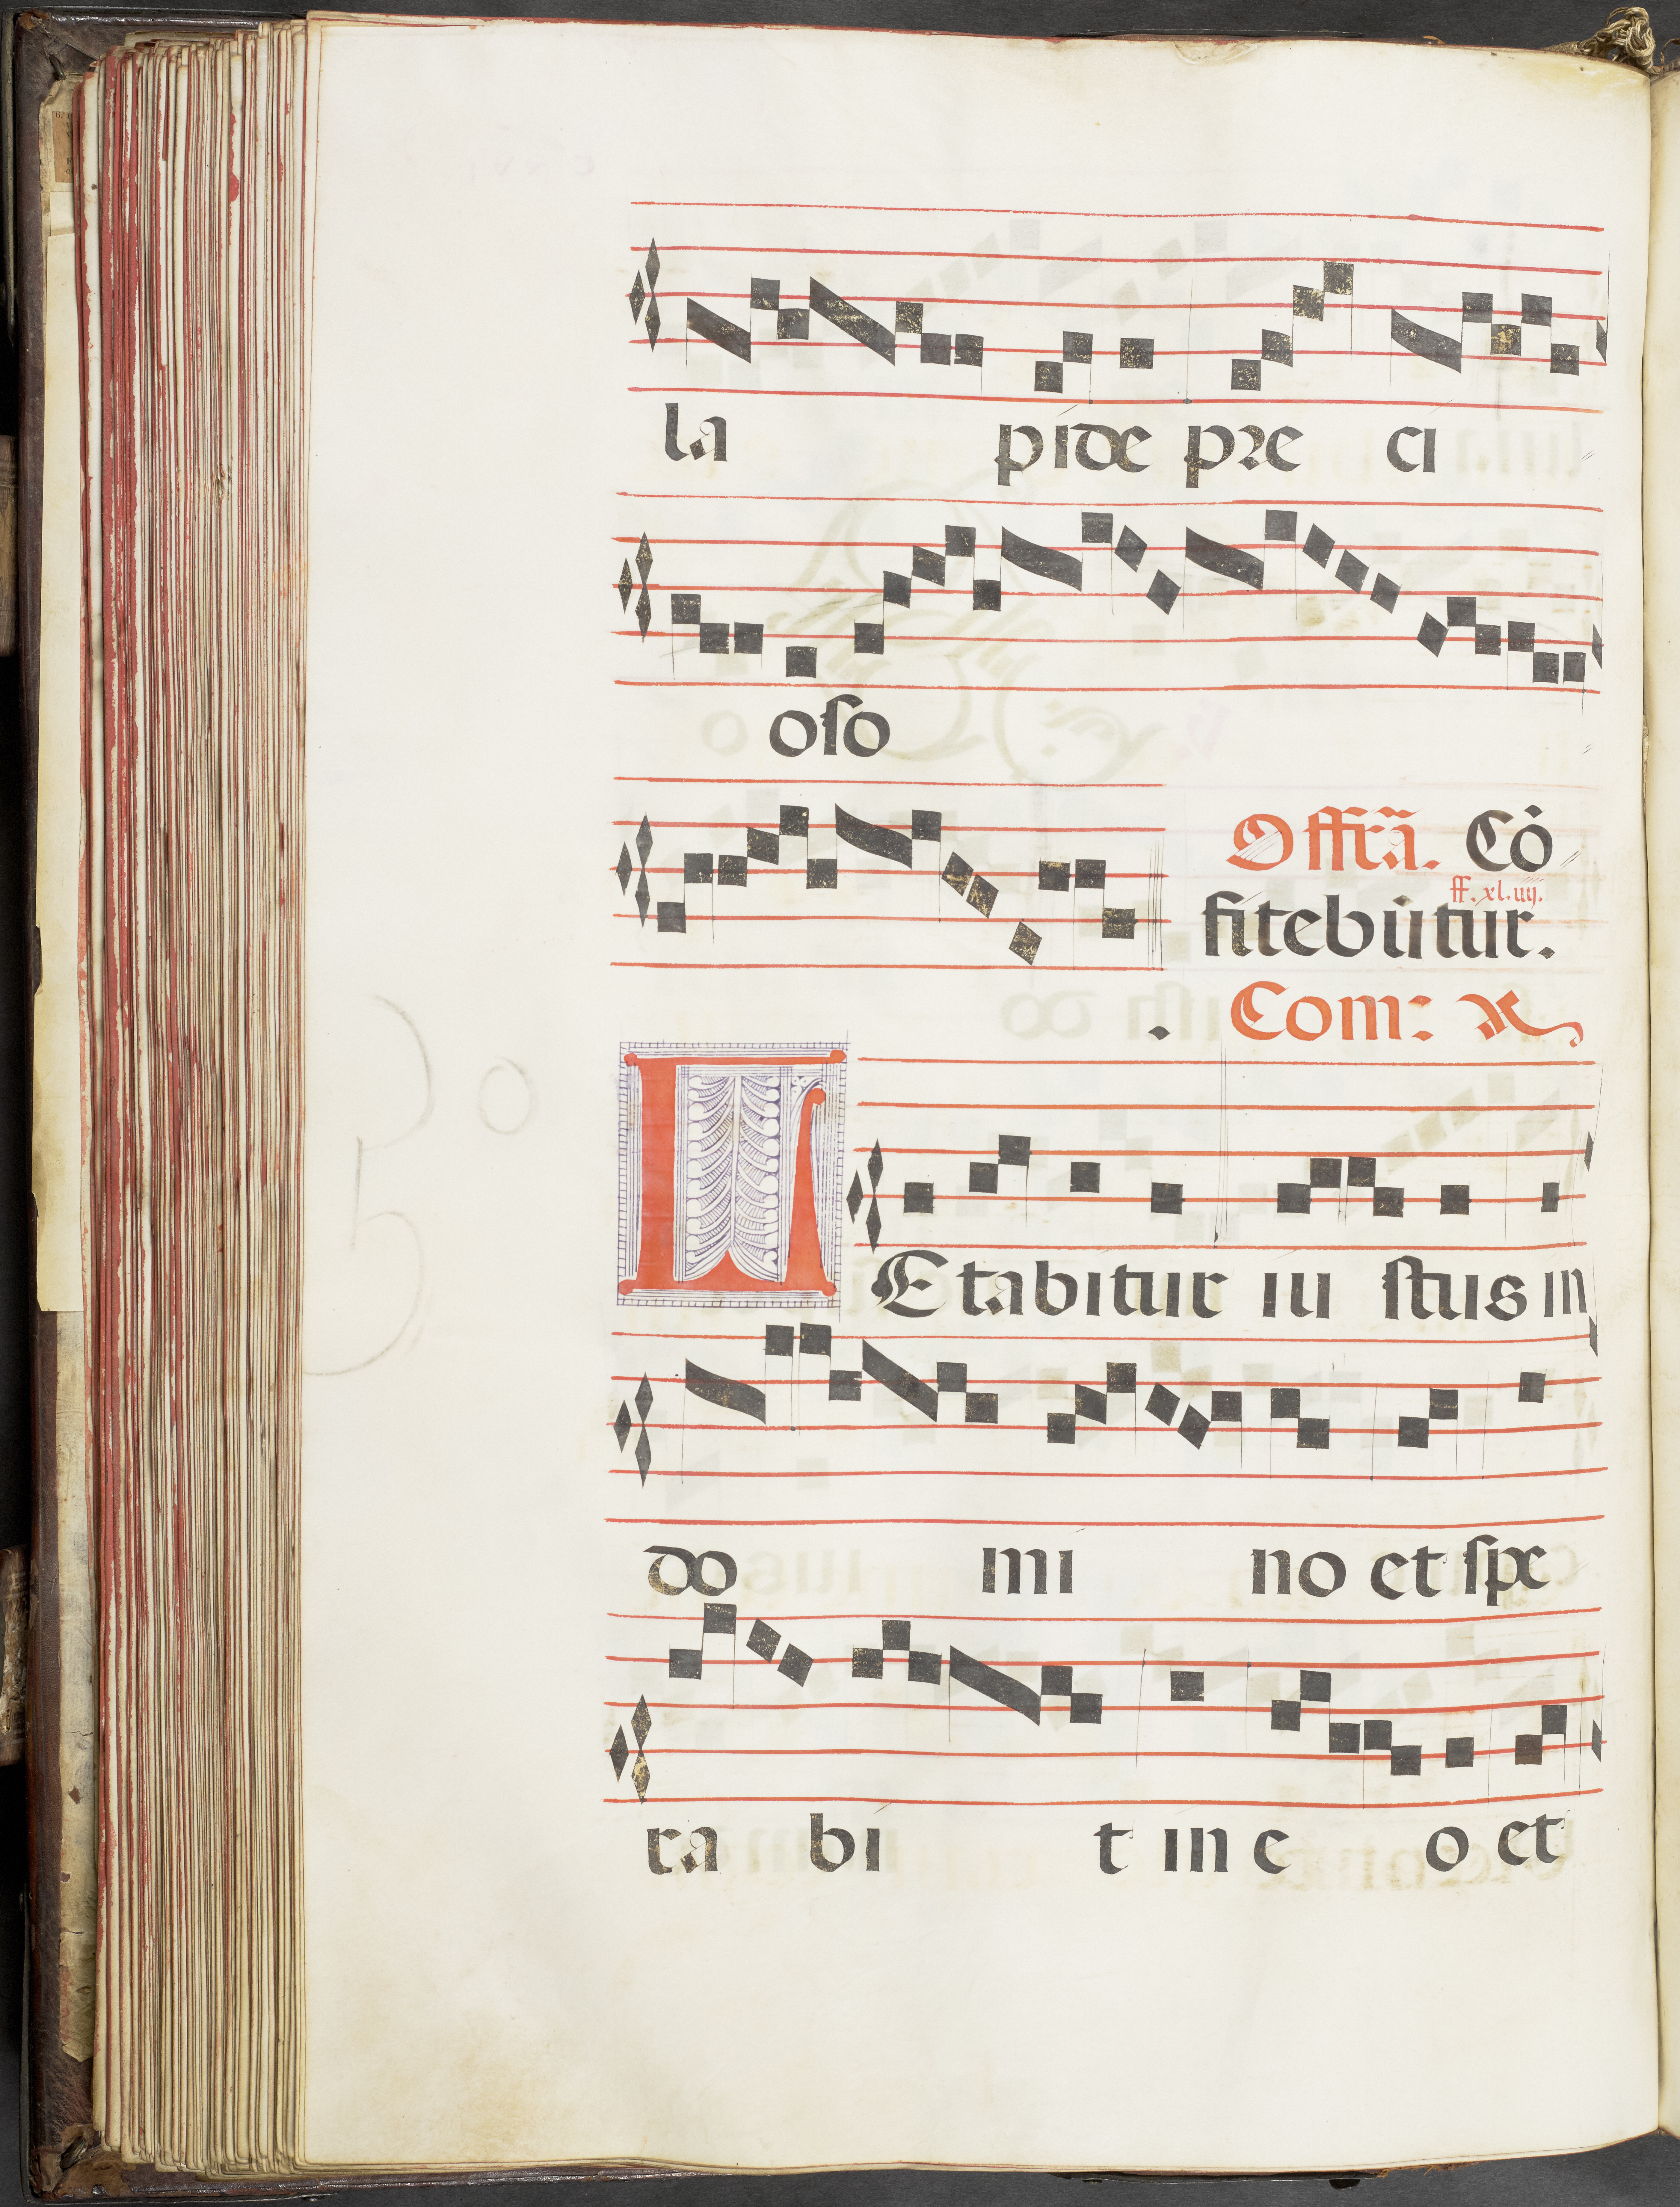 la pide pre ci
oso
Offrã. Cõ
ff. xl. iiij.
fitebũtur.
Com:
LEtabitur iu stus in
do mi no et spe
ra bi t in e o et